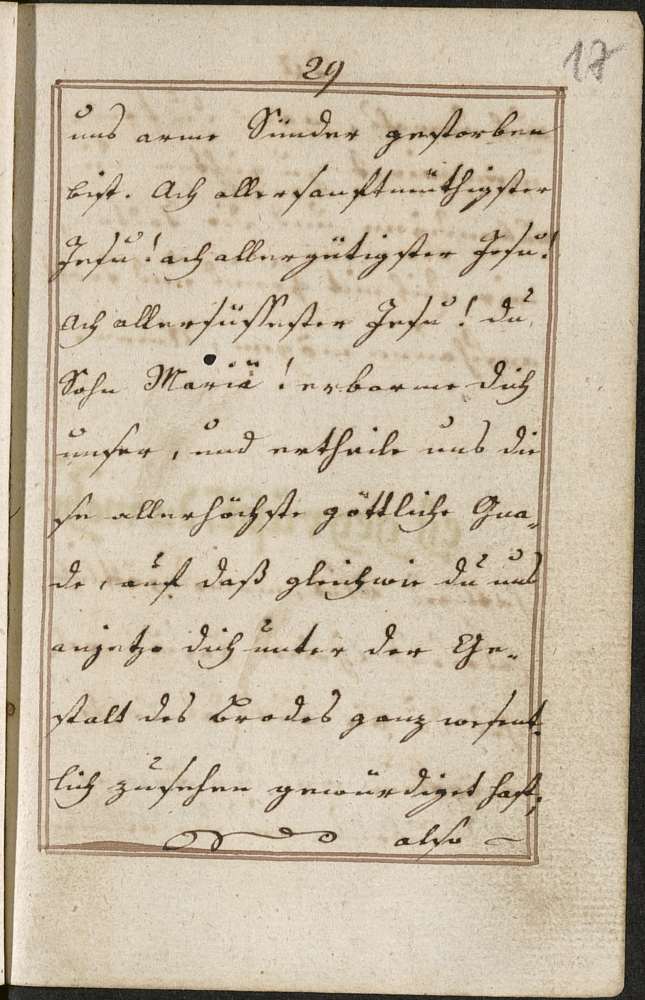 29
17
uns arme Sünder gestorben
bist. Ach allersanftmüthigster
Jesu! ach allergütigster Jesu!
Ach allersüssester Jesu! du
Sohn Mariä! erbarme dich
unser, und ertheile uns die
se allerhöchste göttliche Gna„
de, auf daß gleichwie du uns
anjetzo dich unter der Ge„
stalt des Brodes ganz wesent„
lich zusehen gewürdiget hast;
also